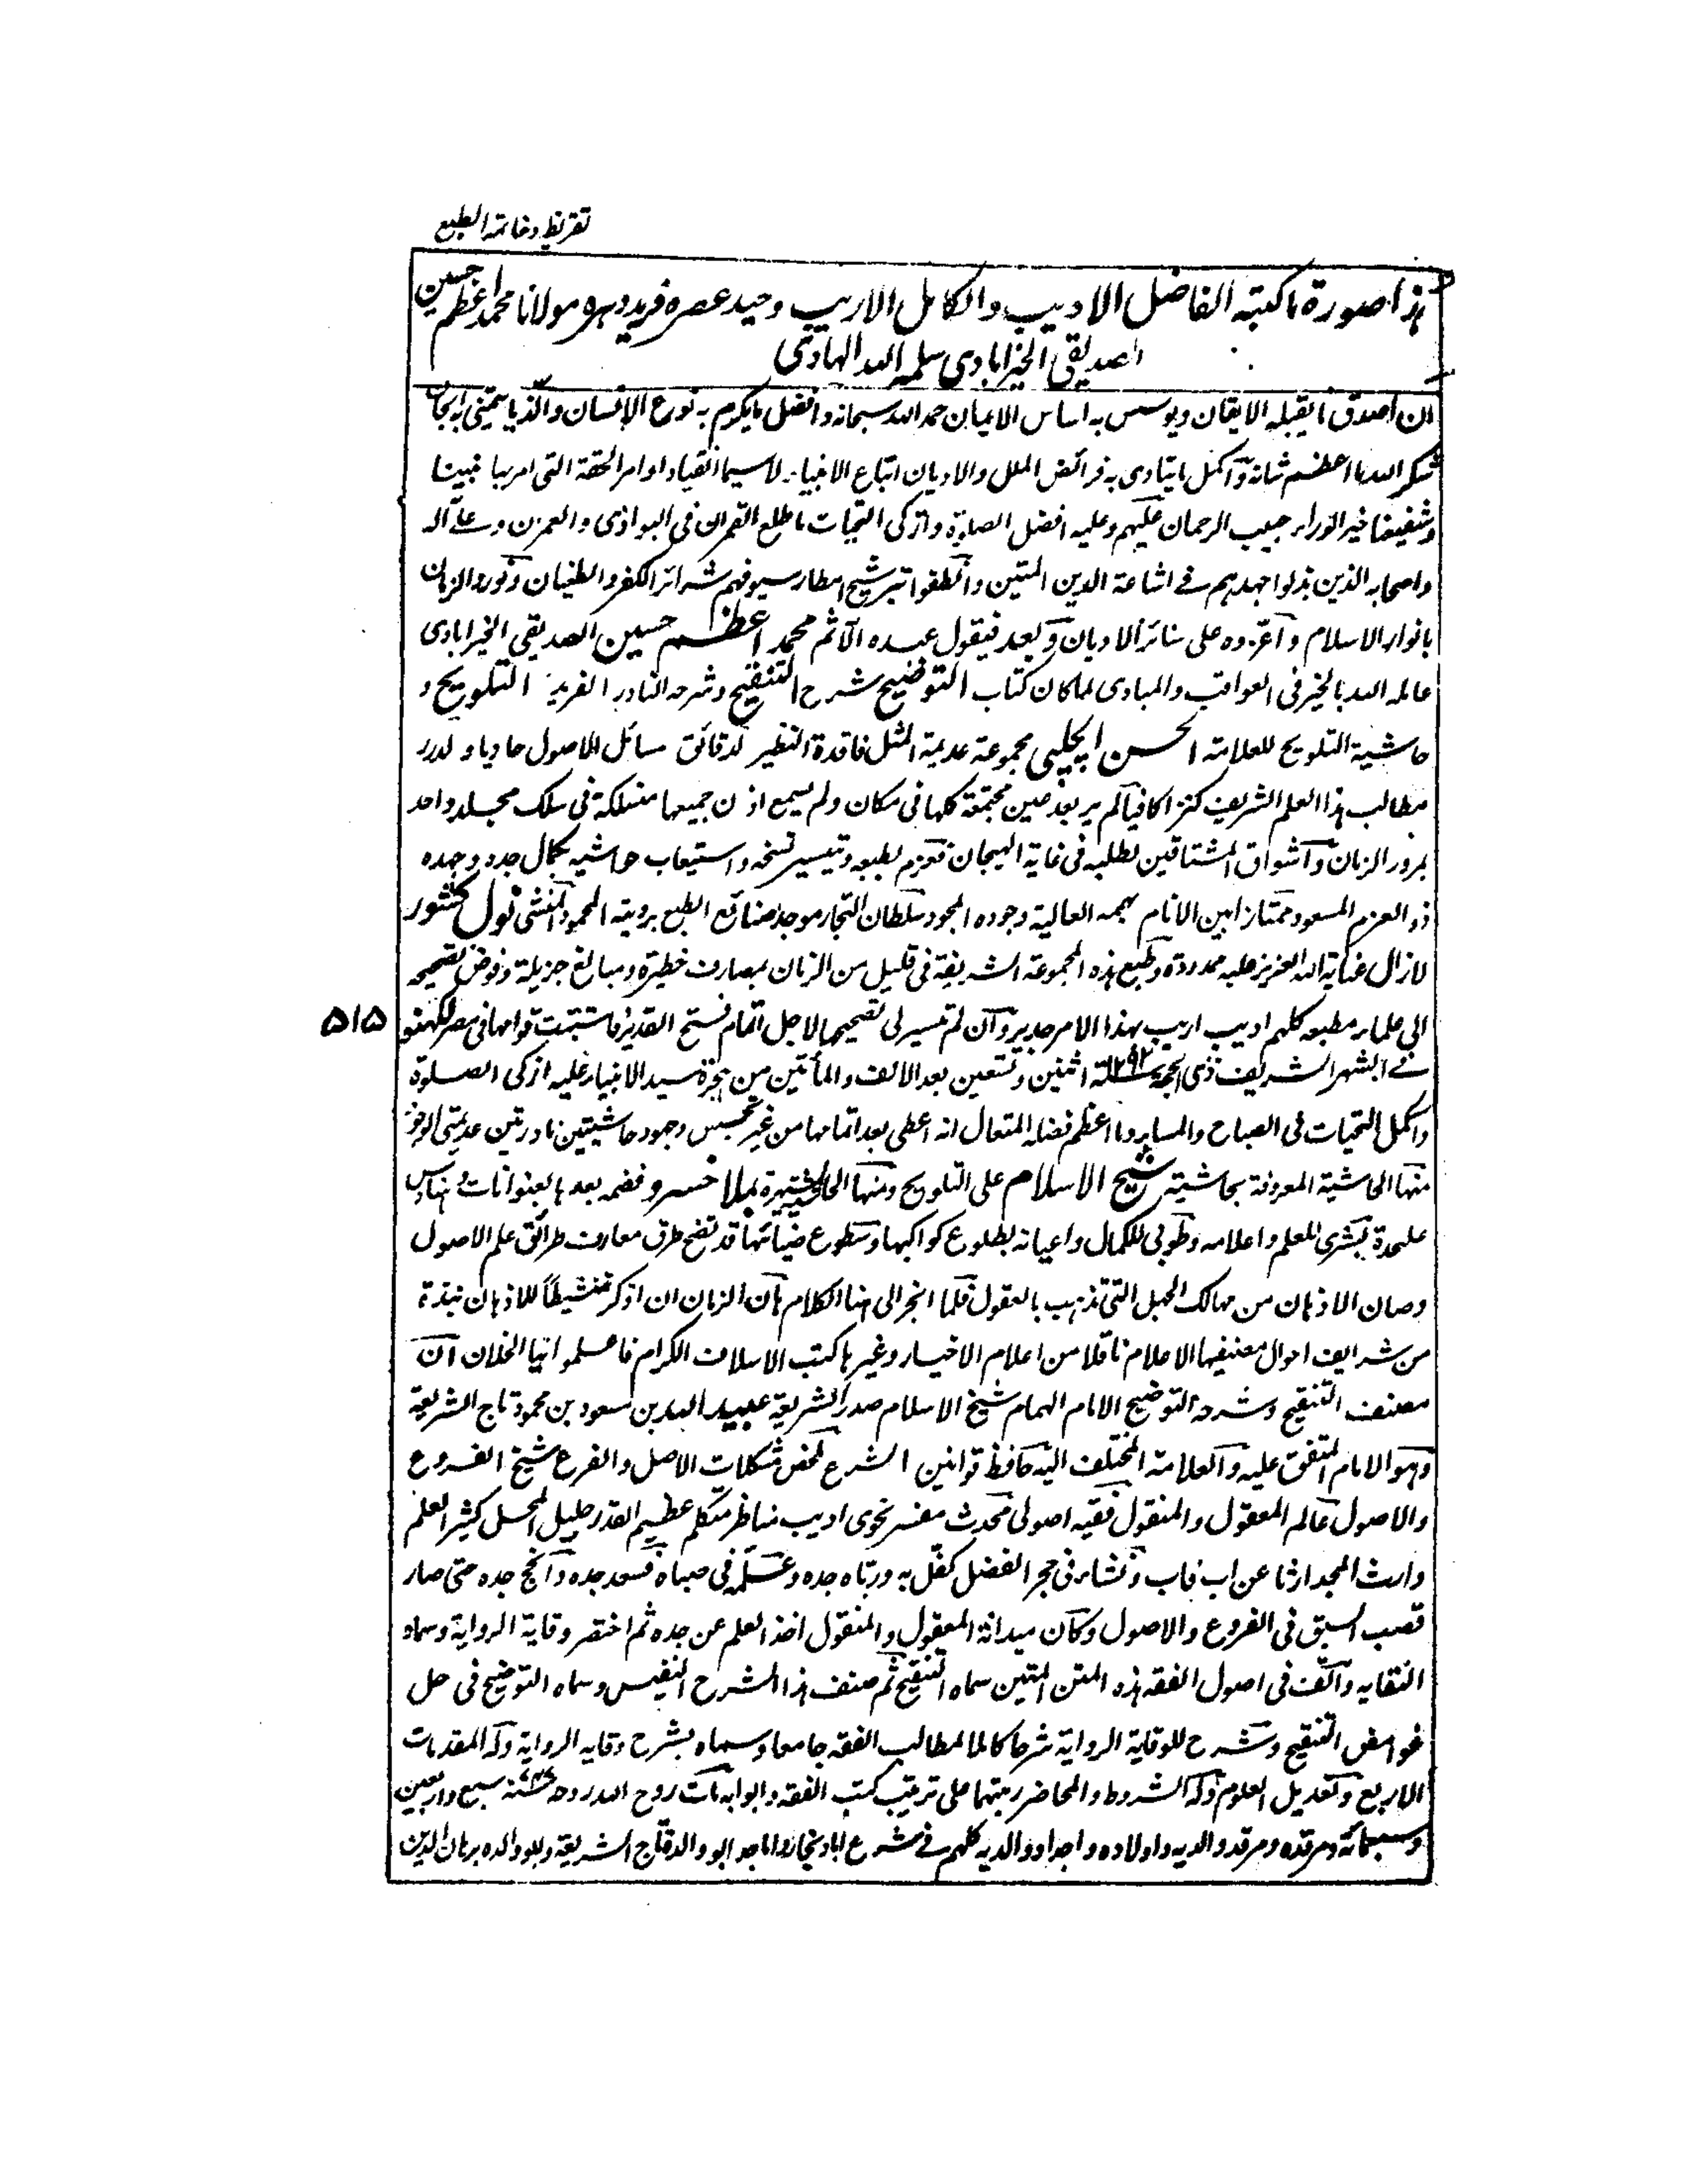 تقريظ وخاتمة الطبع
هذا صورة ما كتبه الفاضل الاديب والكامل الاريب وحيد عصره فريد دهره مولانا محمد اعظم حسين
الصديقي الخيرابادي سلمه الله الهادي
ان اصدق ما يقبله الايقان ويوسس به اساس الايمان حمد الله سبحانه وافضل ما يكرم به نوع الانسان والذ ما يتمنى به
شكر الله ما اعظم شانه واكمل ما يتادى به فرائض الملل والاديان اتباع الانبياء لا سيما انقياد اوامر الحقة التي امر بها نبينا
وشفيعنا خير الوراء حبيب الرحمان عليهم وعليه افضل الصلوة وازكى التحيات ما طلع القمران في البوادي والعمرن وعلى آله
واصحابه الذين بذلوا جهدهم في اشاعة الدين المتين وانطفوا بترشيح امطار سيوفهم شرائر الكفر والطغيان ونوروا الزمان
بانوار الاسلام واعزوه على سائر الاديان وبعد فيقول عبده الآثم محمد اعظم حسين الصديقي الخيرابادي
عامله الله بالخير في العواقب والمبادي لما كان كتاب التوضيح شرح التنقيح وشرحه النادر الفريد التلويح و
حاشية التلويح للعلامة الحسن الچلپي مجموعة عديمة المثل فاقدة النظير لدقائق مسائل الاصول حاويا ولدرر
مطالب هذا العلم الشريف كنزا كافيا لم ير بعد عين مجتمعة كلها في مكان ولم يسمع اذن جميعها منسلكة في سلك مجلد واحد
بمرور الزمان واشواق المشتاقين لطلبه في غاية الهيجان فعزم لطبعه وتيسير نسخه واستيعاب حواشيه بكمال جده وجهده
ذو العزم المسعود ممتاز ما بين الانام بهمه العالية وجوده المجود سلطان التجار موجد صنائع الطبع برويته المحمود المنشي نول كشور
لازال عناية الله العزيز عليه ممدودة وطبع هذه المجموعة الشريفة في قليل من الزمان بمصارف خطيرة ومبالغ جزيلة وفوض تصحيحه
الى علماء مطبعه كلهم اديب اريب بهذا الامر جدير وان لم تيسر لي تصحيحها لاجل اتمام فتح القدير فاستتبت قوامها في مصر لكهنؤ
٥١٥
في الشهر الشريف ذي الحجة سنة ١٢٩٢ اثنين وتسعين بعد الالف والمأتين من هجرة سيد الانبياء عليه ازكى الصلوة
واكمل التحيات في الصباح والمساء وما اعظم فضله المتعال انه اعطى بعد اتمامها من غير تجسس وجود حاشيتين نادرتين عديمتي الوجود
منها الحاشية المعروفة بحاشية شيخ الاسلام على التلويح ومنها الحاشية المشتهرة بملا خسرو فضمه بعدها بعنوانات
علحدة فبشرى للعلم واعلامه وطوبى للكمال واعيانه بطلوع كواكبها وسطوع ضيائها قد تضح طرق معارف طرائق علم الاصول
وصان الاذهان من مهالك الجهل التي تذهب بالعقول فلما انجر الى هنا الكلام هان الزمان ان اذكر تنشيطا للاذهان نبذة
من شرايف احوال مصنفيها الاعلام ناقلا من اعلام الاخيار وغيرها كتب الاسلاف الكرام فاعلموا ايها الخلان ان
مصنف التنقيح وشرحه التوضيح الامام الهمام شيخ الاسلام صدر الشريعة عبيد الله بن مسعود بن محمود تاج الشريعة
وهو الامام المتفق عليه والعلامة المختلف اليه حافظ قوانين الشرع ملخص مشكلات الاصل والفرع شيخ الفروع
والاصول عالم المعقول والمنقول فقيه اصولي محدث مفسر نحوي اديب مناظر متكلم عظيم القدر جليل المحل كثير العلم
وارث المجد ارثا عن اب فاب ونشاء في حجر الفضل كفل به ورباه جده وعلمه في صباه فسعد جده وانجح جده حتى صار
قصب السبق في الفروع والاصول وكان ميدانه المعقول والمنقول اخذ العلم عن جده ثم اختصر وقاية الرواية وسماه
النقايه والف في اصول الفقه هذه المتن المتين سماه التنقيح ثم صنف هذا الشرح النفيس وسماه التوضيح في حل
غوامض التنقيح وشرح للوقاية الرواية شرحا كاملا لمطالب الفقه جامعا وسماه بشرح وقايه الرواية وله المقدمات
الاربع وتعديل العلوم وله الشروط والمحاضر رتبهما على ترتيب كتب الفقه وابوابه مات روح الله روحه سنة ٧٤٧ سبع واربعين
وسبعمائة ومرقده ومرقد والديه واولاده واجداد والديه كلهم في شرع اباد بخارا واما جد ابو والد تاج الشريعة وابو والده برهان الدين